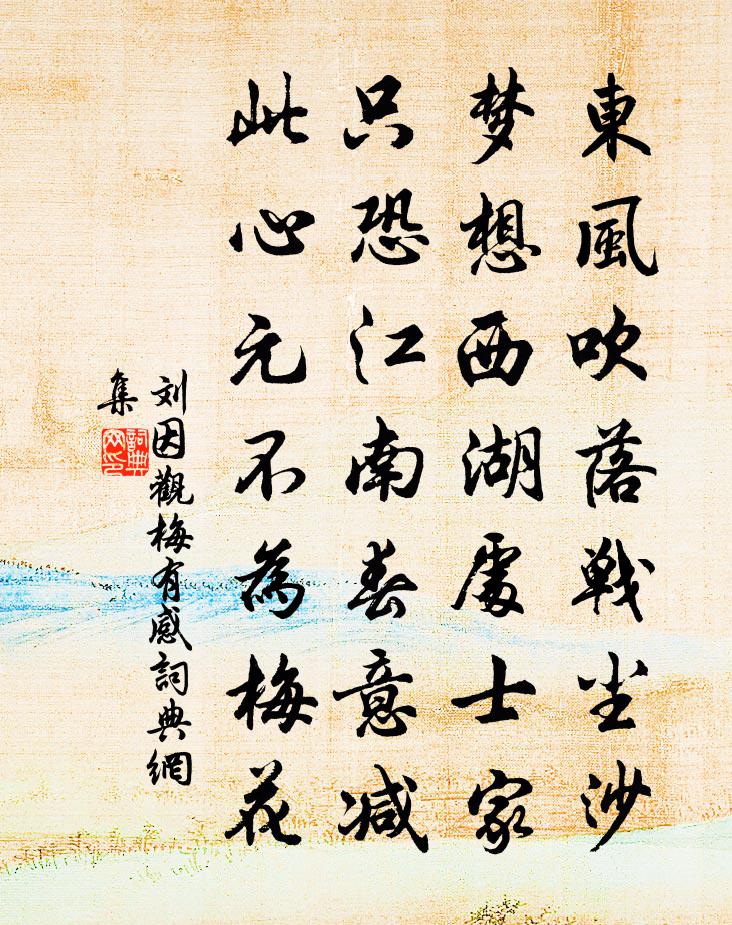 東風吹落戰尘沙
梦想西湖處士家
只恐江南春意减
此心元不為梅花
刘因觀梅有感詞典網
集
詞典网印